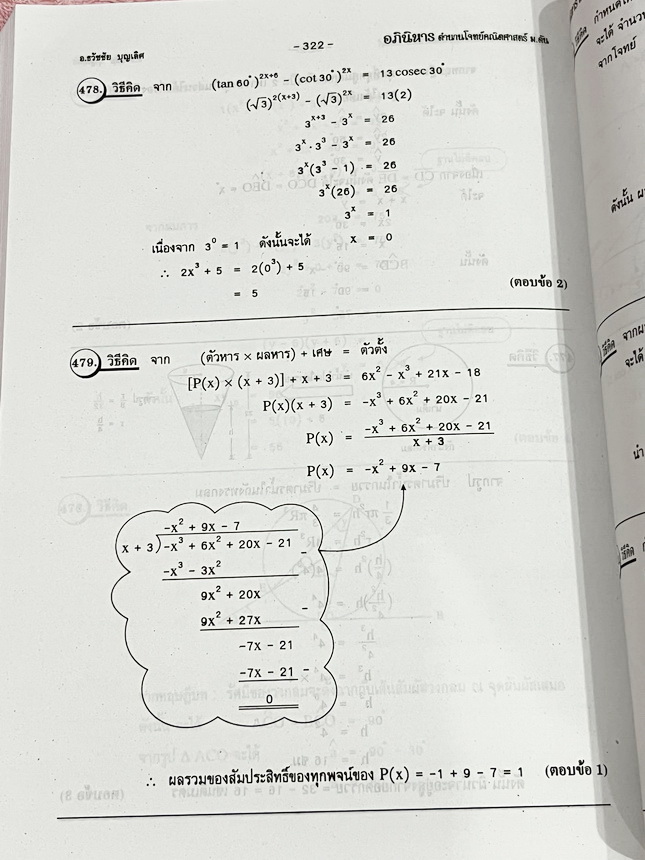 อ.ธวัชชัย บุญเลิศ
- 322 -
อภินิหาร ตำนานโจทย์คณิตศาสตร์ ม.ต้น
478. วิธีคิด จาก (tan 60°)^(2x+6) - (cot 30°)^(2x) = 13 cosec 30°
(√3)^(2(x+3)) - (√3)^(2x) = 13(2)
3^(x+3) - 3^x = 26
3^x · 3^3 - 3^x = 26
3^x(3^3 - 1) = 26
3^x(26) = 26
3^x = 1
เนื่องจาก 3^0 = 1 ดังนั้นจะได้ x = 0
∴ 2x^3 + 5 = 2(0^3) + 5
= 5
(ตอบข้อ 2)
479. วิธีคิด จาก (ตัวหาร × ผลหาร) + เศษ = ตัวตั้ง
[P(x) × (x + 3)] + x + 3 = 6x^2 - x^3 + 21x - 18
P(x)(x + 3) = -x^3 + 6x^2 + 20x - 21
P(x) = (-x^3 + 6x^2 + 20x - 21)/(x + 3)
P(x) = -x^2 + 9x - 7
-x^2 + 9x - 7
x + 3)-x^3 + 6x^2 + 20x - 21
-x^3 - 3x^2 -
9x^2 + 20x
9x^2 + 27x -
-7x - 21
-7x - 21 -
0
∴ ผลรวมของสัมประสิทธิ์ของทุกพจน์ของ P(x) = -1 + 9 - 7 = 1 (ตอบข้อ 1)
กำหนดให้
จะได้ จำนวน
จากโจทย์
ดังนั้น
วิธีคิด
จะได้
วิธีคิด